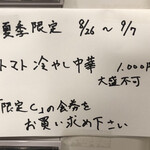 夏季限定 8/26 ～ 9/7
トマト冷やし中華 1.000円
大盛不可
「限定C」の食券を
お買い求め下さい